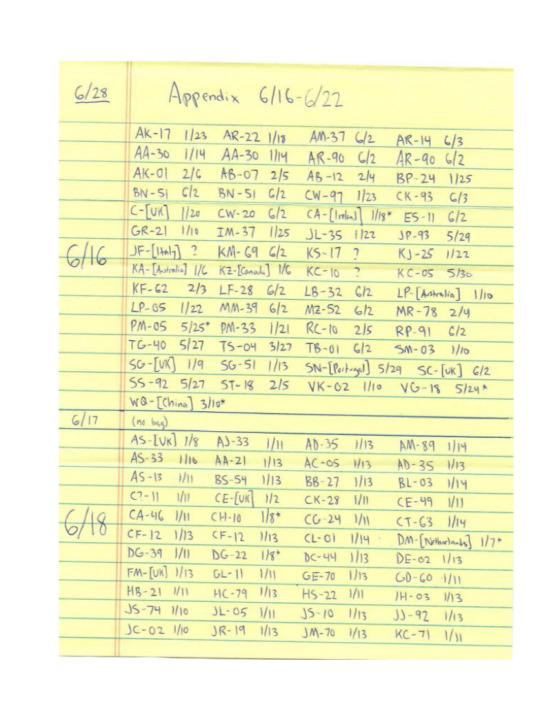 6/28 Appendix 6/16-6/22
AK-17 1/23 AR-22 1/18 AM-37 6/2 AR-14 6/3
AA-30 1/14 AA-30 1/14 AR-90 6/2 AR-90 6/2
AK-01 2/6 AB-07 2/5 AB-12 2/4 BP-24 1/25
BN-51 6/2 BN-51 6/2 CW-97 1/23 CK-93 6/3
C-[UK] 1/20 CW-20 6/2 CA-[Ireland] 1/18* ES-11 6/2
GR-21 1/10 IM-37 1/25 JL-35 1/22 JP-93 5/29
6/16 JF-[Italy] ? KM-69 6/2 KS-17 ? KJ-25 1/22
KA-[Australia] 1/6 KZ-[Canada] 1/6 KC-10 ? KC-05 5/30
KF-62 2/3 LF-28 6/2 LB-32 6/2 LP-[Australia] 1/10
LP-05 1/22 MM-39 6/2 MZ-52 6/2 MR-78 2/4
PM-05 5/25* PM-33 1/21 RC-10 2/5 RP-91 6/2
TG-40 5/27 TS-04 3/27 TB-01 6/2 SM-03 1/10
SG-[UK] 1/9 SG-51 1/13 SN-[Portugal] 5/29 SC-[UK] 6/2
SS-92 5/27 ST-18 2/5 VK-02 1/10 VG-18 5/24*
WQ-[China] 3/10*
6/17 (no bag)
AS-[UK] 1/8 AJ-33 1/11 AD-35 1/13 AM-89 1/14
AS-33 1/16 AA-21 1/13 AC-05 1/13 AD-35 1/13
AS-13 1/11 BS-54 1/13 BB-27 1/13 BL-03 1/14
C?-11 1/11 CE-[UK] 1/2 CK-28 1/11 CE-49 1/11
6/18 CA-46 1/11 CH-10 1/8* CG-24 1/11 CT-63 1/14
CF-12 1/13 CF-12 1/13 CL-01 1/14 DM-[Netherlands] 1/7*
DG-39 1/11 DG-22 1/8* DC-44 1/13 DE-02 1/13
FM-[UK] 1/13 GL-11 1/11 GE-70 1/13 GD-60 1/11
HB-21 1/11 HC-79 1/13 HS-22 1/11 JH-03 1/13
JS-74 1/10 JL-05 1/11 JS-10 1/13 JJ-92 1/13
JC-02 1/10 JR-19 1/13 JM-70 1/13 KC-71 1/11